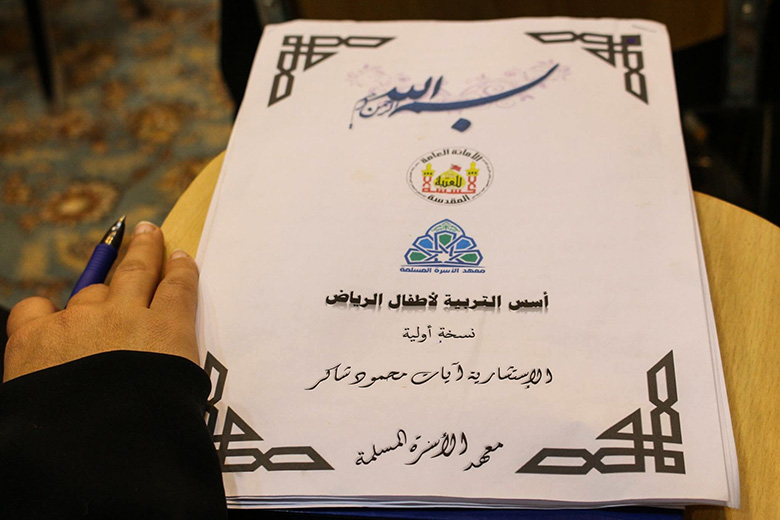 بسم الله الرحمن الرحيم
الأمانة العامة
للعتبة
الحسينية
المقدسة
معهد الأسرة المسلمة
أسس التربية لأطفال الرياض
نسخة أولية
الإستشارية آيات محمود شاكر
معهد الأسرة المسلمة